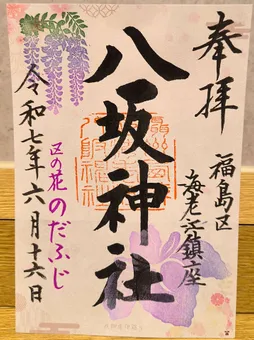 奉拝
福島区
海老江鎮座
八坂神社
区の花
のだふじ
令和七年六月十六日